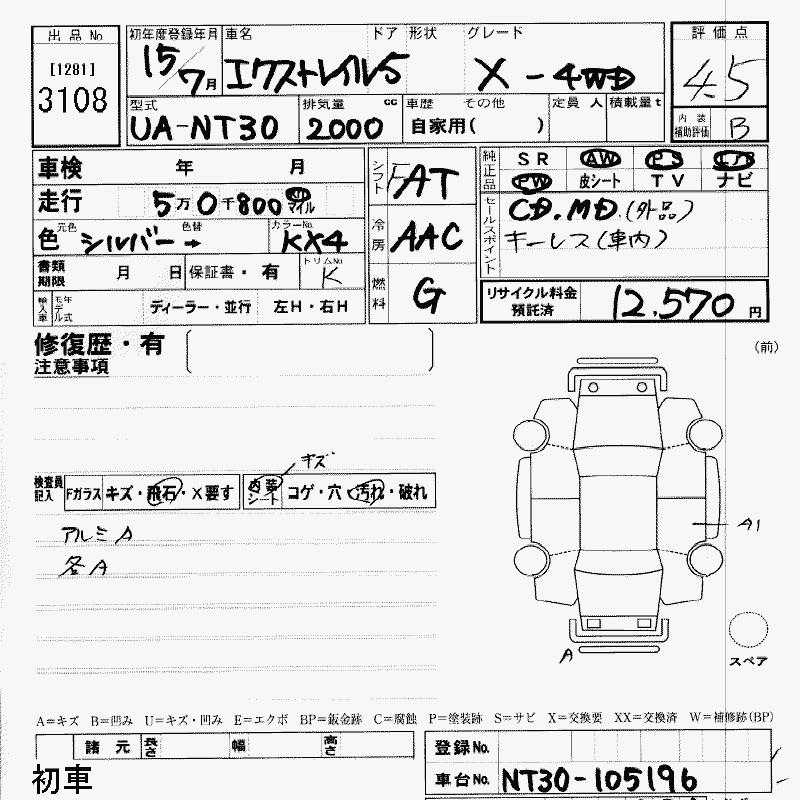 出品No 初年度登録年月 車名 ドア 形状 グレード 評価点
[1281] 15/7月 エクストレイル 5 X-4WD 4.5
3108
型式 排気量 cc 車歴 その他 定員 人 積載量 t 内装補助評価
UA-NT30 2000 自家用( ) B
車検 年 月 シフト FAT 純正品 SR AW PS エアB
PW 皮シート TV ナビ
走行 5万0千800 マイル
セールスポイント CD.MD.(外品)
色 元色 シルバー 色替 → カラーNo. KX4 冷房 AAC キーレス(車内)
書類期限 月 日 保証書・有 トリムNo K
輸入車 モデル年式 ディーラー・並行 左H・右H 燃料 G リサイクル料金預託済 12,570円
修復歴・有
注意事項
(前)
キズ
検査員記入 Fガラス キズ・飛石・X要す 内装シート コゲ・穴・汚れ・破れ
アルミA
冬A
A1
A
スペア
A=キズ B=凹み U=キズ・凹み E=エクボ BP=鈑金跡 C=腐蝕 P=塗装跡 S=サビ X=交換要 XX=交換済 W=補修跡(BP)
諸元 長さ 幅 高さ 登録No.
初車 車台No. NT30-105196